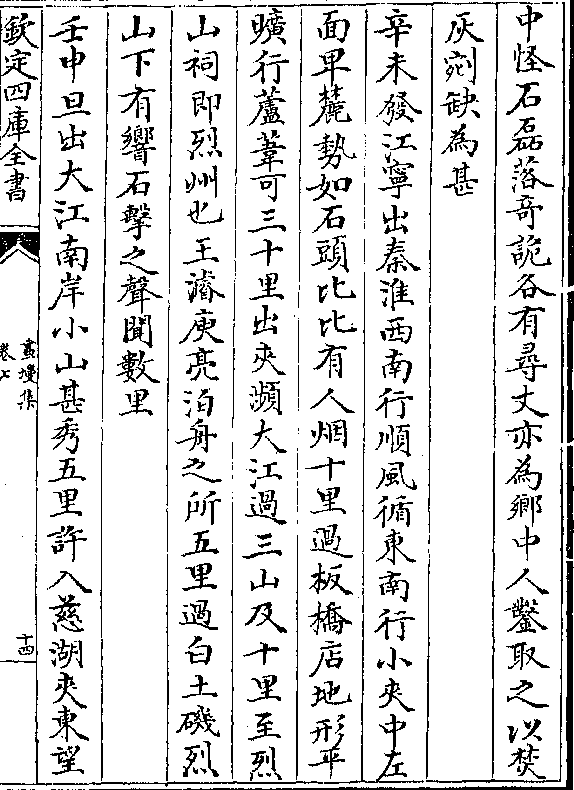 中怪石磊落奇詭各有尋丈亦為鄉中人鑿取之以焚
灰剜缺為甚
辛未發江寧出秦淮西南行順風循東南行小夾中左
面早麓勢如石頭比比有人烟十里過板橋店地形平
曠行蘆葦可三十里出夾瀕大江過三山及十里至烈
山祠即烈州也王濬庾亮泊舟之所五里過白土磯烈
山下有響石擊之聲聞數里
壬申旦出大江南岸小山甚秀五里許入慈湖夾東望
欽定四庫全書
畫墁集
卷七
十四